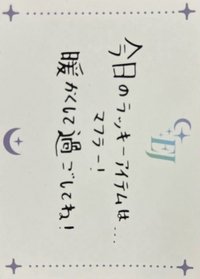 今日のラッキーアイテムは…
マフラー!
暖かくして過ごしてね!
EJ